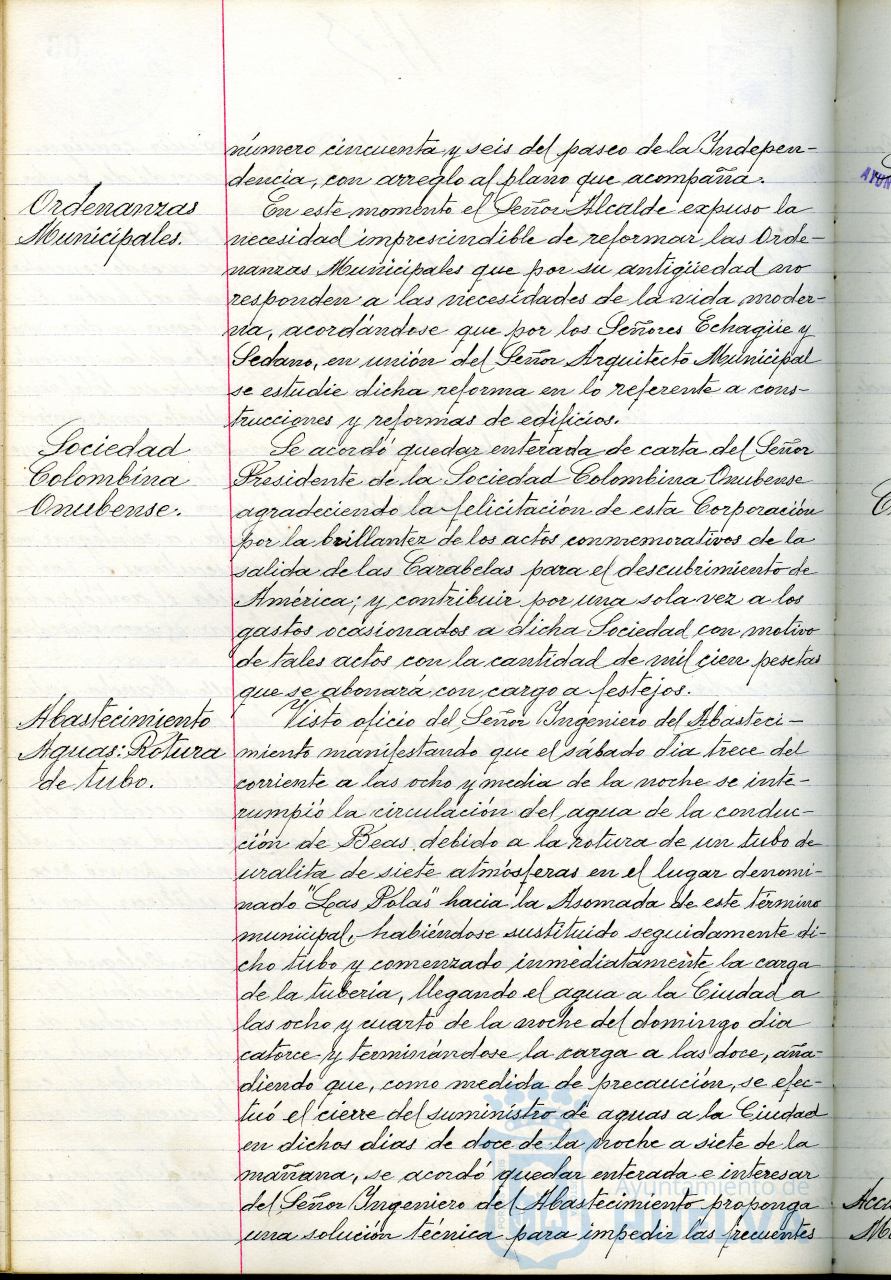 número cincuenta y seis del paseo de la Indepen-
dencia, con arreglo al plano que acompaña.
Ordenanzas
Municipales.
En este momento el Señor Alcalde expuso la
necesidad imprescindible de reformar las Orde-
nanzas Municipales que por su antigüedad no
responden a las necesidades de la vida moder-
na, acordándose que por los Señores Echagüe y
Sedano, en unión del Señor Arquitecto Municipal
se estudie dicha reforma en lo referente a cons-
trucciones y reformas de edificios.
Sociedad
Colombina
Onubense.
Se acordó quedar enterada de carta del Señor
Presidente de la Sociedad Colombina Onubense
agradeciendo la felicitación de esta Corporación
por la brillantez de los actos conmemorativos de la
salida de las Carabelas para el descubrimiento de
América; y contribuir por una sola vez a los
gastos ocasionados a dicha Sociedad con motivo
de tales actos con la cantidad de mil cien pesetas
que se abonará con cargo a festejos.
Abastecimiento
Aguas: Rotura
de tubo.
Visto oficio del Señor Ingeniero del Abasteci-
miento manifestando que el sábado dia trece del
corriente a las ocho y media de la noche se inte-
rumpió la circulación del agua de la conduc-
ción de Beas debido a la rotura de un tubo de
uralita de siete atmósferas en el lugar denomi-
nado "Las Polas" hacia la Asomada de este término
municipal, habiéndose sustituido seguidamente di-
cho tubo y comenzado inmediatamente la carga
de la tubería, llegando el agua a la Ciudad a
las ocho y cuarto de la noche del domingo dia
catorce y terminándose la carga a las doce, aña-
diendo que, como medida de precaución, se efec-
tuó el cierre del suministro de aguas a la Ciudad
en dichos dias de doce de la noche a siete de la
mañana, se acordó quedar enterada e interesar
del Señor Ingeniero de Abastecimiento proponga
una solución técnica para impedir las frecuentes
Ayuntamiento de
HUELVA